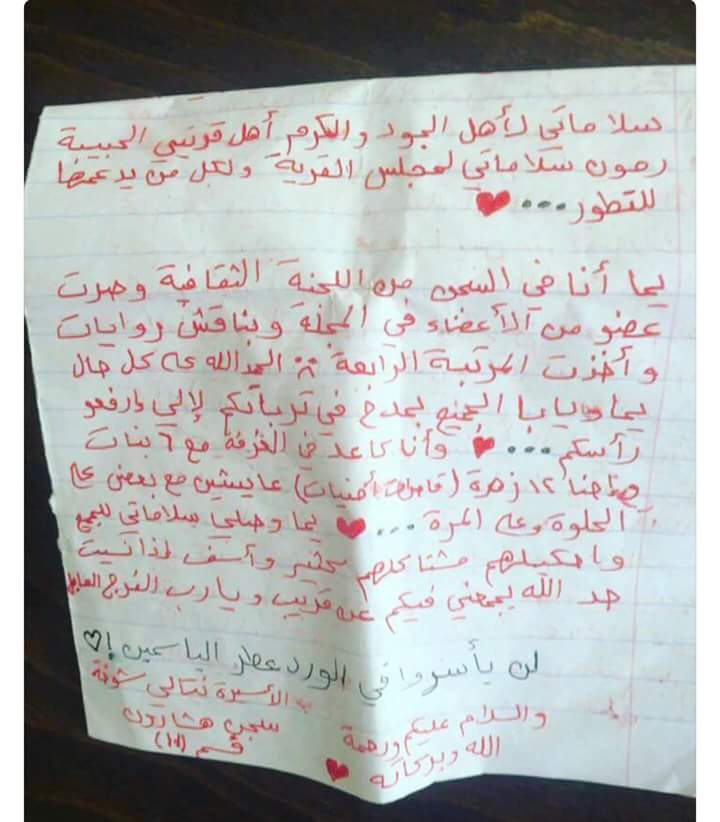 سلاماتي لأهل الجود والكرم أهل قريتي الحبيبة
رمون سلاماتي لمجلس القرية ولكل من يدعمها
للتطور...♥
يما أنا في السجن من اللجنة الثقافية وصرت
عضو من الأعضاء في المجلة وبناقش روايات
وأخذت المرتبة الرابعة الحمدالله عه كل حال
يما ويابا الجميع بمدح في ترباتكم لإلي وارفعو
رأسكم...♥ وأنا كاعد في الغرفة مع ٦ بنات
١٢ زهرة (قاصرات أمنيات) عايشين مع بعض عه
الحلوة وعه المرة...♥ يما وصلي سلاماتي للجميع
واحكيلهم مشتاكلهم كثير وآسف إذا نسيت
حد الله يجمعني فيكم عن قريب ويارب الفرج العاجل
لن يأسروا في الورد عطر الياسمين!♡
الأسيرة نتالي شوخة
والسلام عليكم ورحمة
سجن هشارون
الله وبركاته ♥
قسم (11)